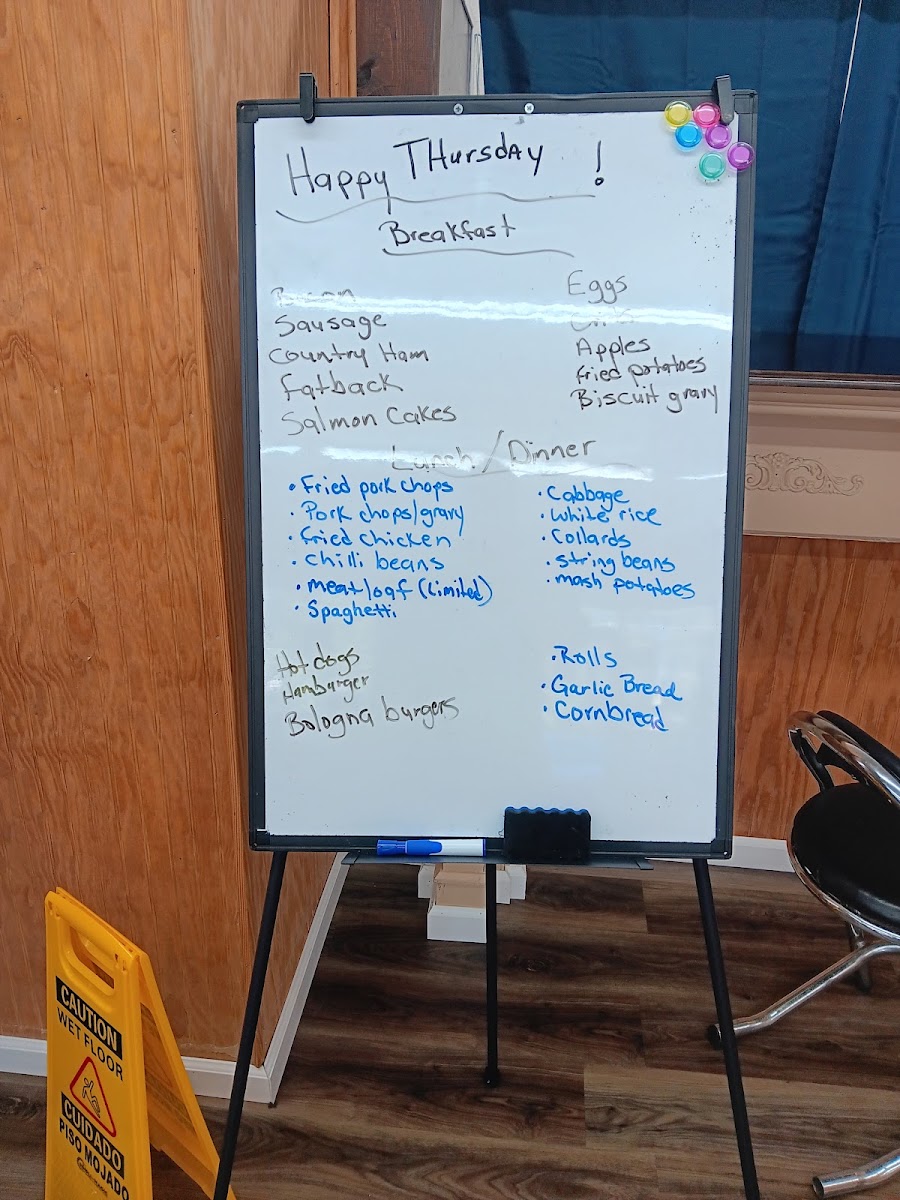 Happy THursdAy !
Breakfast
Bacon
Sausage
Country Ham
Fatback
Salmon Cakes
Eggs
Apples
Fried potatoes
Biscuit gravy
Lunch / Dinner
• Fried pork chops
• Pork chops/gravy
• Fried chicken
• chilli beans
• meatloaf (Limited)
• Spaghetti
• Cabbage
• White rice
• Collards
• string beans
• mash potatoes
Hot dogs
Hamburger
Bologna burgers
• Rolls
• Garlic Bread
• Cornbread
CAUTION
WET FLOOR
CUIDADO
PISO MOJADO